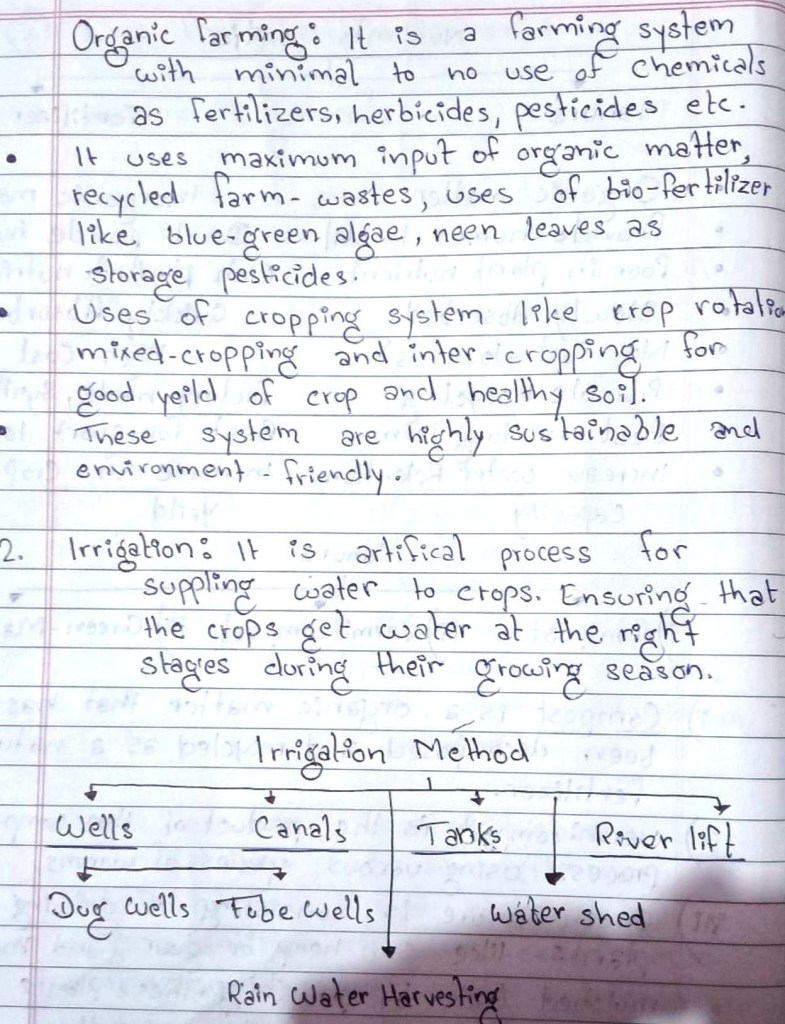 Organic farming: It is a farming system
with minimal to no use of chemicals
as fertilizers, herbicides, pesticides etc.
• It uses maximum input of organic matter,
recycled farm-wastes, uses of bio-fertilizer
like, blue green algae, neen leaves as
storage pesticides.
• Uses of cropping system like crop rotatio
mixed-cropping and inter cropping for
good yeild of crop and healthy soil.
• These system are highly sustainable and
environment friendly.
2. Irrigation: It is artifical process for
suppling water to crops. Ensuring that
the crops get water at the right
stages during their growing season.
Irrigation Method
Wells Canals Tanks River lift
Dug wells Tube wells water shed
Rain Water Harvesting